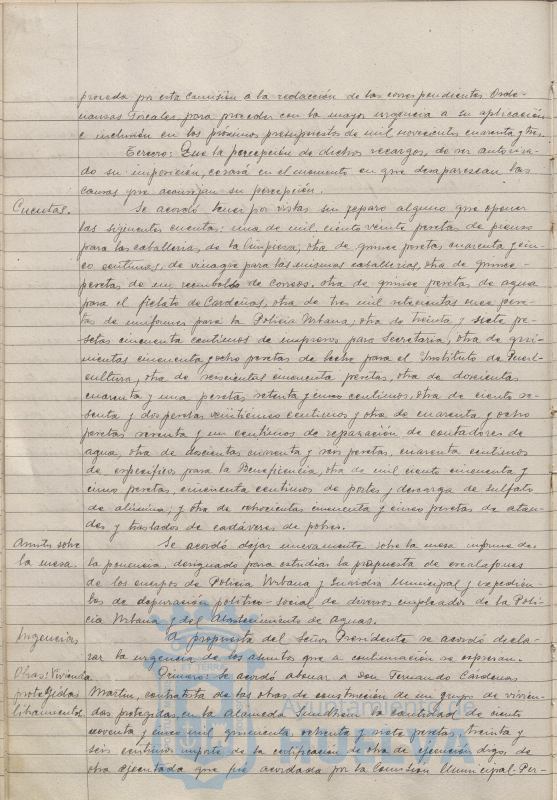 proceda por esta Comisión a la redacción de las correspondientes Orde-
nanzas Fiscales para proceder con la mayor urgencia a su aplicación
e inclusión en los próximos presupuestos de mil novecientos cuarenta y tres.
Tercero: Que la percepción de dichos recargos, de ser autoriza-
do su imposición, cesará en el momento en que desaparezcan las
causas que aconsejan su percepción.
Cuentas. Se acordó tener por vistas sin reparo alguno que oponer
las siguientes cuentas: una de mil ciento veinte pesetas de piensos
para las caballerias, de la limpieza, otra de quince pesetas cuarenta y cin-
co centimos, de vinagre para las mismas caballerias, otra de quince
pesetas de un reembolso de correos, otra de quince pesetas de agua
para el fielato de Cardeñas, otra de tres mil setecientas once pese-
tas de uniformes para la Policia Urbana; otra de treinta y siete pe-
setas cincuenta centimos de impresos para Secretaria, otra de qui-
nientas cincuenta y ocho pesetas de leche para el Instituto de Pueri-
cultura, otra de seiscientas cincuenta pesetas, otra de doscientas
cuarenta y una pesetas setenta y cinco centimos, otra de ciento se-
senta y dos pesetas veinticinco centimos y otra de cuarenta y ocho
pesetas sesenta y un centimos de reparación de contadores de
agua, otra de doscientas cuarenta y seis pesetas, cuarenta centimos
de especificos para la Beneficencia, otra de mil ciento cincuenta y
cinco pesetas, cincuenta centimos de portes y descarga de sulfato
de alumina; y otra de ochocientas cincuenta y cinco pesetas de ataú-
des y traslados de cadáveres de pobres.
Asuntos sobre Se acordó dejar nuevamente sobre la mesa informe de
la mesa. la ponencia, designada para estudiar la propuesta de escalafones
de los cuerpos de Policia Urbana y Guardia Municipal y expedien-
tes de depuración politico-social de diversos empleados de la Poli-
cia Urbana y del Abastecimiento de aguas.
Urgencias A propuesta del Señor Presidente se acordó decla-
rar la urgencia de los asuntos que a continuación se expresan.
Obras: Vivienda Primero: Se acordó abonar a Don Fernando Cardenas
protegidas Martin, contratista de las obras de construcción de un grupo de vivien-
libramientos. das protegidas, en la Alameda Sundheim la cantidad de ciento
noventa y cinco mil, quinientas, ochenta y siete pesetas, treinta y
seis centimos importe de la certificación de obra de ejecución digo, de
obra ejecutada que fué acordada por la Comisión Municipal Per-
Ayuntamiento de
HUELVA